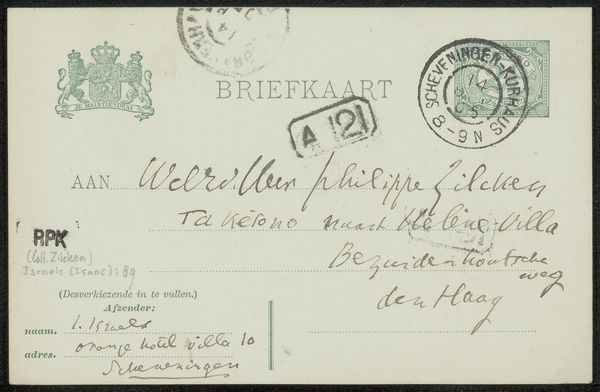 JE MAINTIENDRAI
BRIEFKAART
SCHEVENINGEN-KURHAUS
14
05
8-9N
A 2
AAN WelEd. Heer Philippe Zilcken
Taketono naast Hélène Villa
Bezuidenhoutsche
weg
den Haag
RPK
(Coll. Zilcken)
Israels (Isaac): 89
(Desverkiezende in te vullen.)
Afzender:
naam. I. Israels
adres. oranje hotel villa 10
Scheveningen